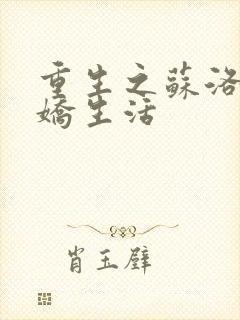 重生之蘇洛
嬌生活
肖玉璧